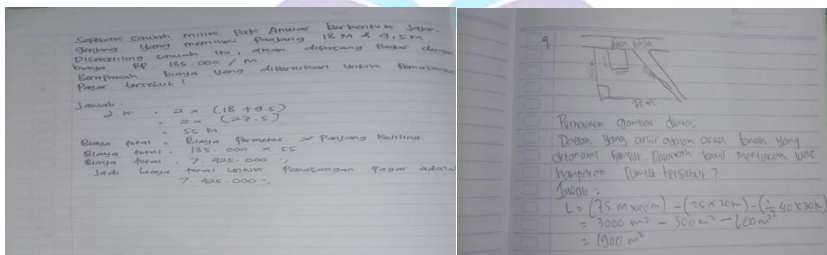 Sepetak sawah milik Pak Anwar berbentuk jajar
genjang yang memiliki panjang 18 M & 9,5 m.
Disekeliling sawah itu, akan dipasang pagar dengan
biaya RP 135.000 / M.
Berapakah biaya yang diperlukan untuk pemasangan
pagar tersebut!
Jawab.
2 × (18 + 9.5)
= 2 × (27.5)
= 55 M
Biaya total = Biaya Permeter × Panjang Keliling
Biaya total = 135.000 × 55
Biaya total = 7.425.000
Jadi biaya total untuk pemasangan pagar adalah
7.425.000
Perhatikan gambar diatas,
yang arsir adalah area tanah yang
ditanami rumput. luas
hamparan rumput tersebut?
Jawab =
L = (75 M × 40 m) - (25 × 20m) - (½ 40 × 30m)
= 3000 m² - 500 m² - 600 m²
= 1900 m²